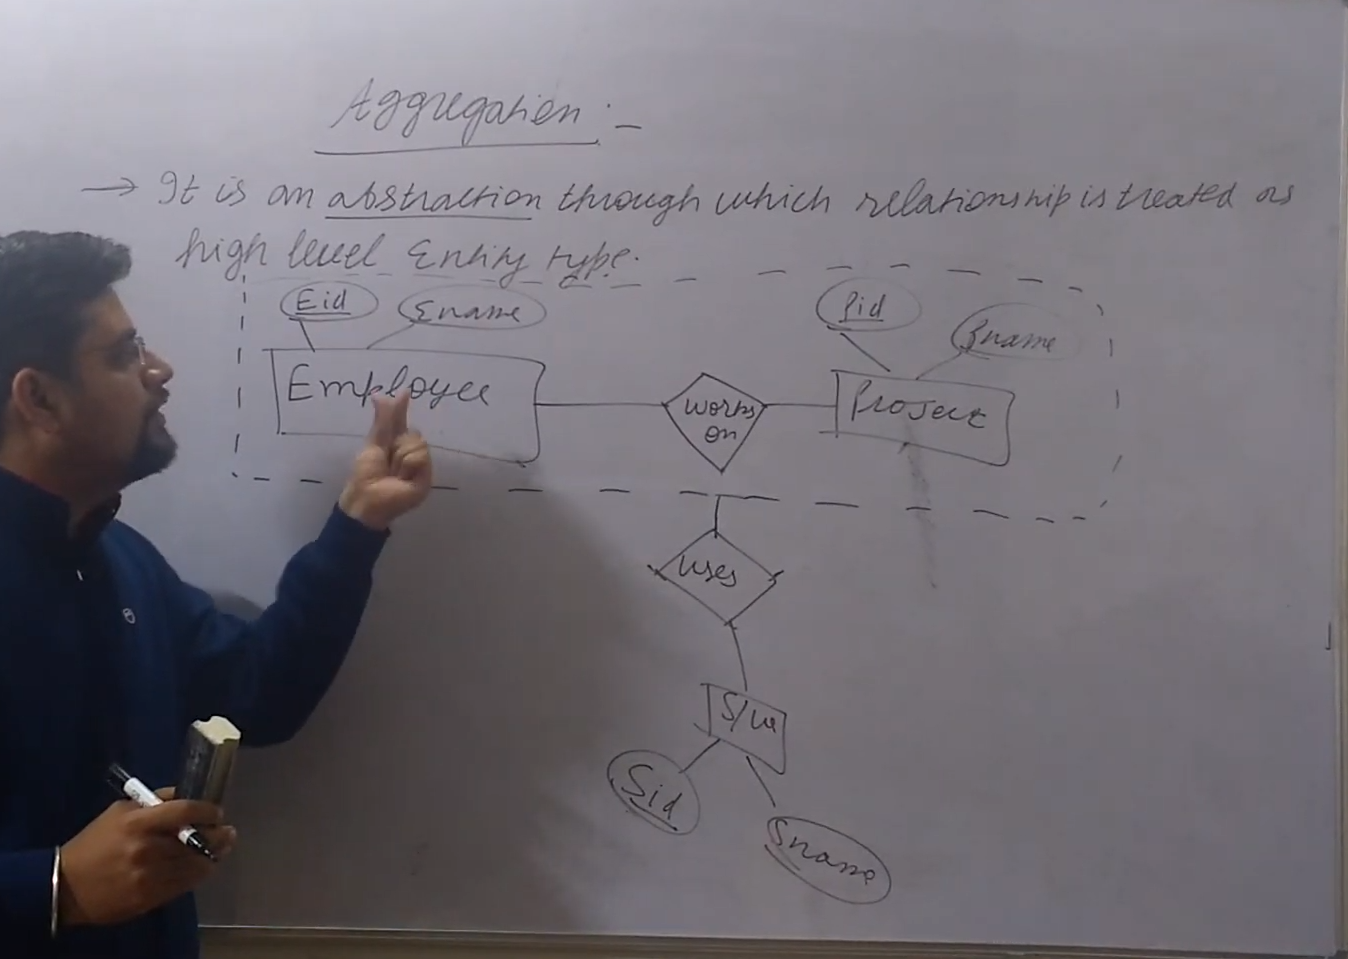 Aggregation :-
→ It is an abstraction through which relationship is treated as
high level Entity type.
Eid
Ename
Pid
Pname
Employee
works
on
Project
uses
S/w
Sid
Sname